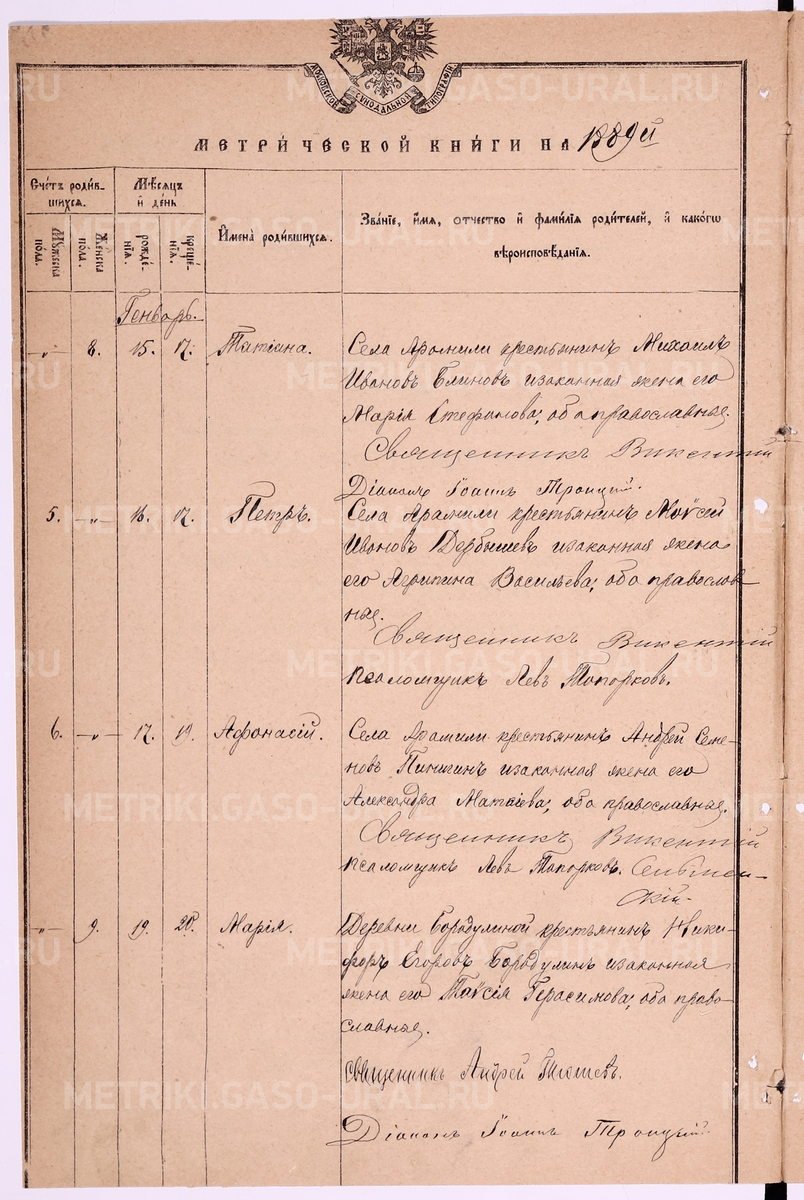 МОСКОВСКОЙ СѴНОДАЛЬНОЙ ТИПОГРАФІИ
МЕТРИ́ЧЕСКОЙ КНИ́ГИ НА 1889й
Сче́тъ роди́вшихся.
Мѣ́сяцъ и҆ де́нь
И҆мена̀ роди́вшихся.
Зва́нїе, и҆́мѧ, ѻ҆тчество и҆ фами́лїѧ роди́телей, и҆ како́гѡ вѣроисповѣ́данїѧ.
Мꙋ́жеска по́ла.
Же́нска по́ла.
рожде́нїѧ.
креще́нїѧ.
Генварь.
-"- 8. 15. 17. Татіана. Села Арамили крестьянинъ Михаилъ
Ивановъ Блиновъ изаконная жена его
Марія Стефанова; оба православные.
Священникъ Викентій
Діаконъ Іоаннъ Троицкій.
5. -"- 16. 17. Петръ. Села Арамили крестьянинъ Моѵсей
Ивановъ Дербышевъ изаконная жена
его Агрипина Васильева; оба православ-
ные.
Священникъ Викентій
Псаломщикъ Левъ Топорковъ.
6. -"- 17. 19. Афонасій. Села Арамили крестьянинъ Андрей Семе-
новъ Пинигинъ изаконная жена его
Александра Матвіева; оба православные.
Священникъ Викентій
Псаломщикъ Левъ Топорковъ.
-кій.
-"- 9. 19. 20. Марія. Деревни Бородулиной крестьянинъ Ники-
форъ Егоровъ Бородулинъ изаконная
жена его Таисія Герасимова; оба право-
славные.
Священникъ Андрей
Діаконъ Іоаннъ Троицкій.
METRIKI.GASO-URAL.RU